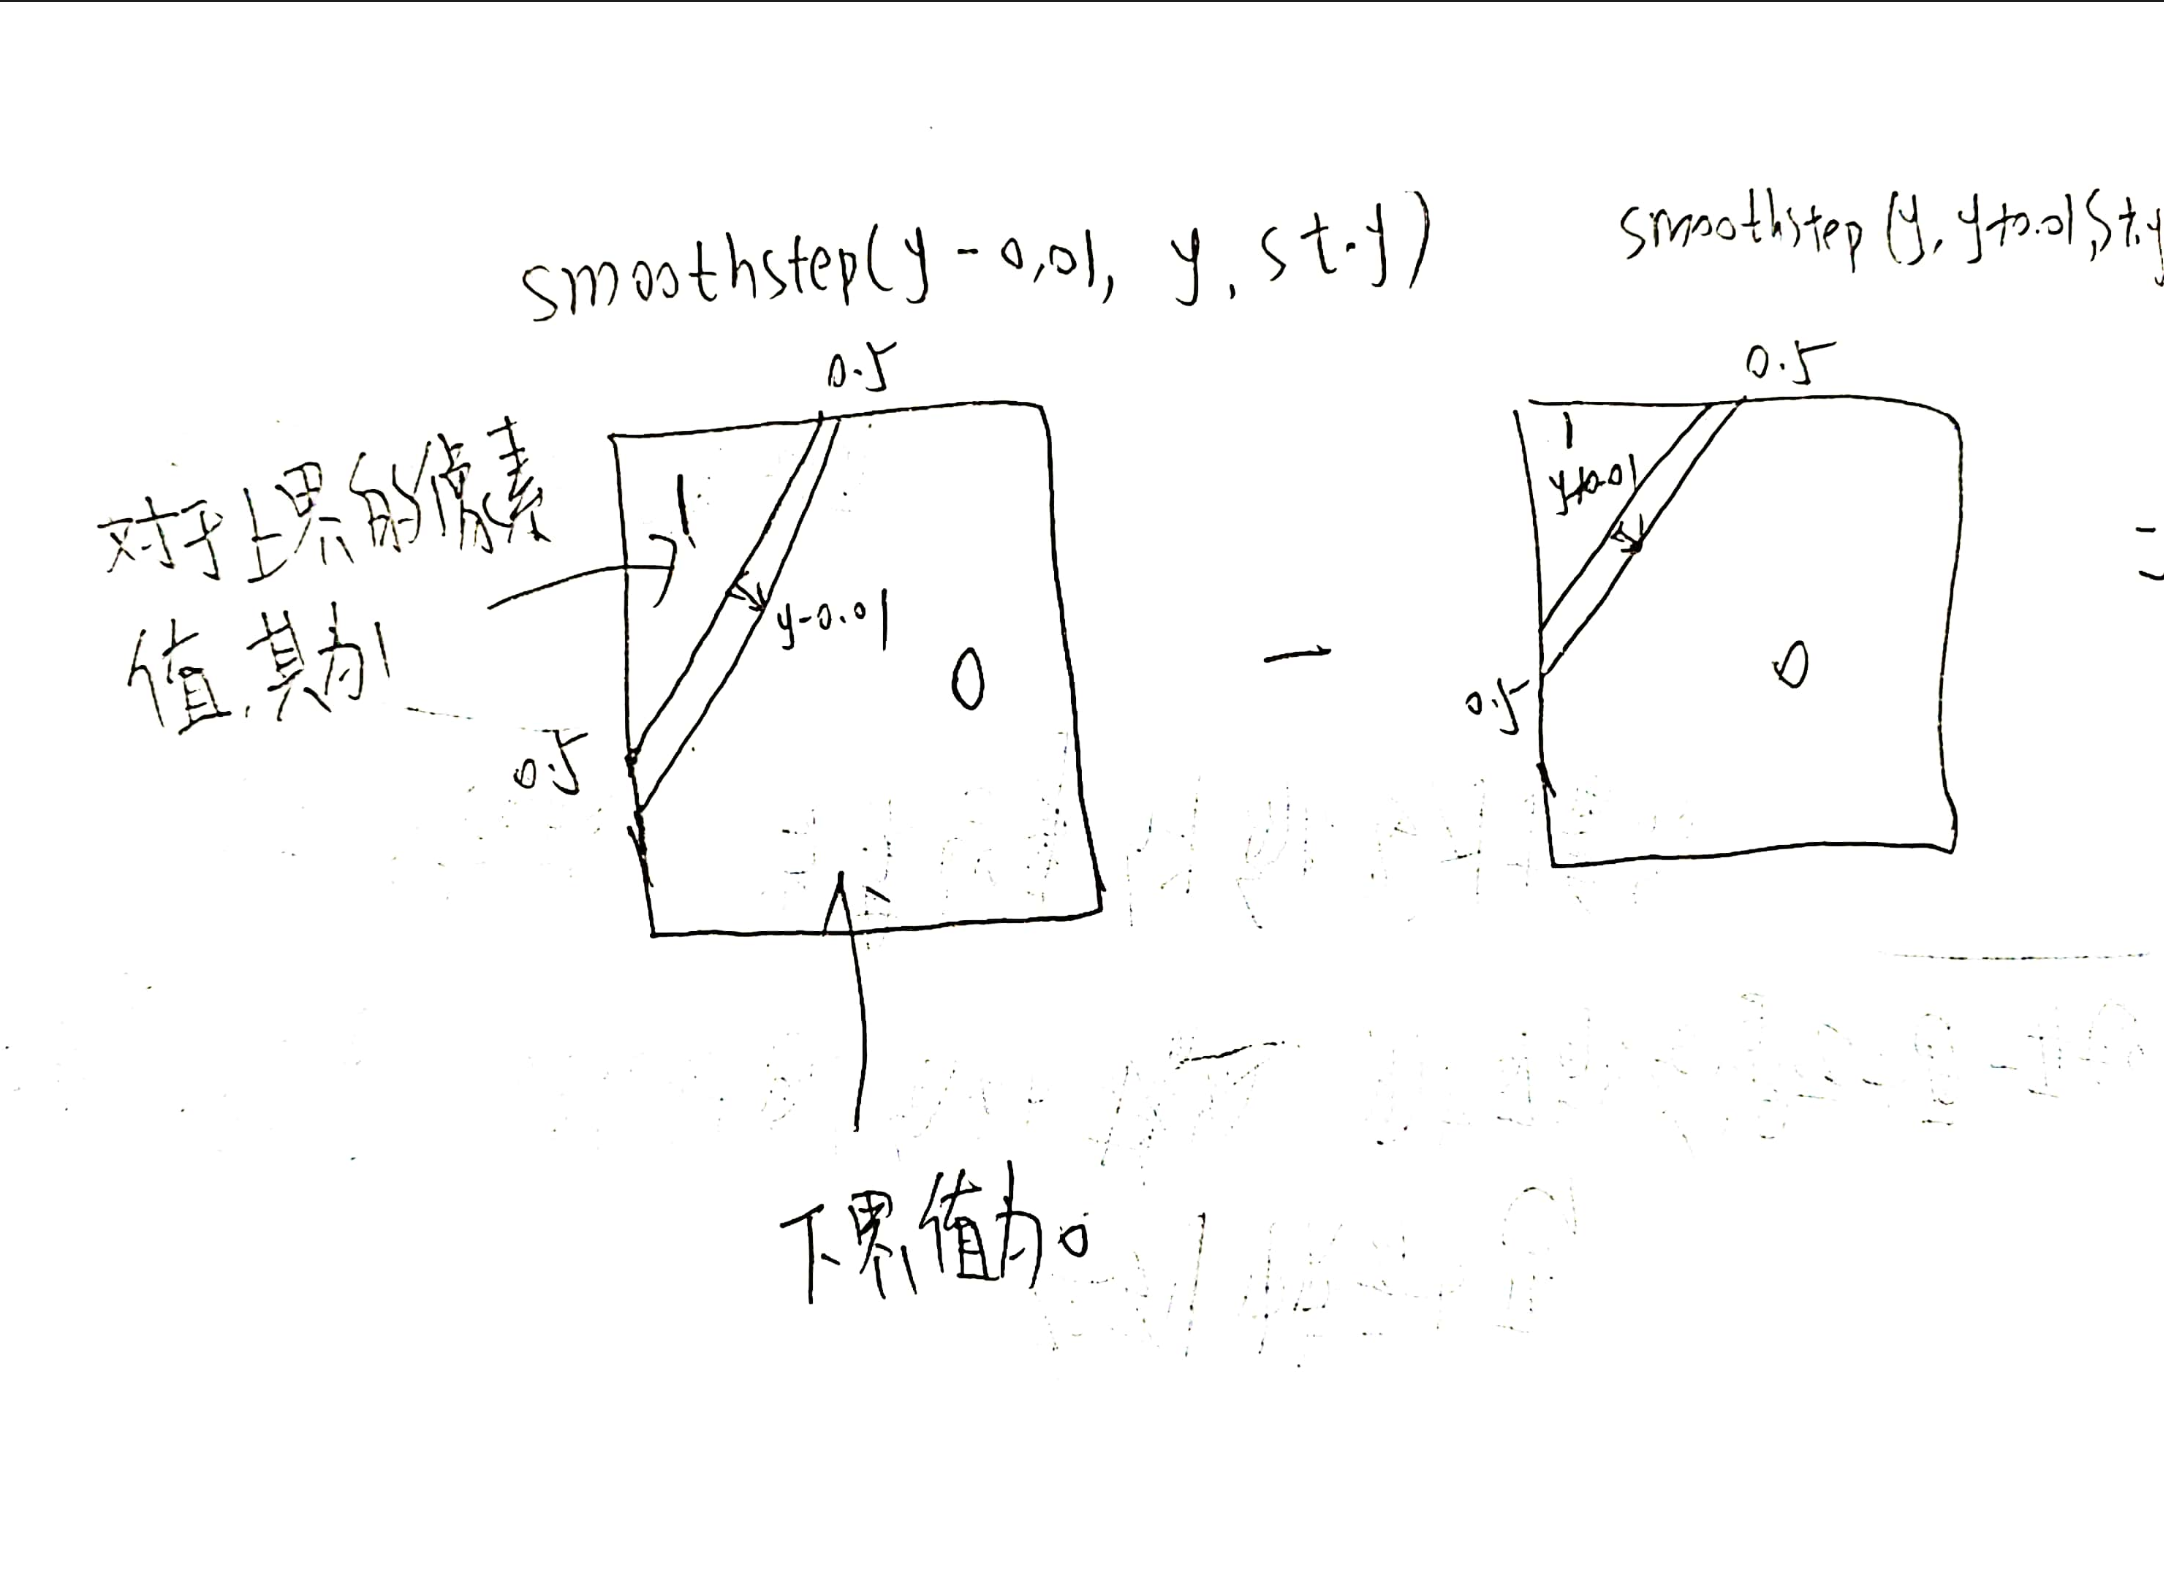 smoothstep(y-0.01, y, st.y)
smoothstep(y, y+0.01, st.y
0.5
0.5
对于上界的像素
值,其为1
1
y-0.01
0
0.5
—
1
y+0.01
0
0.5
=
下界,值为0